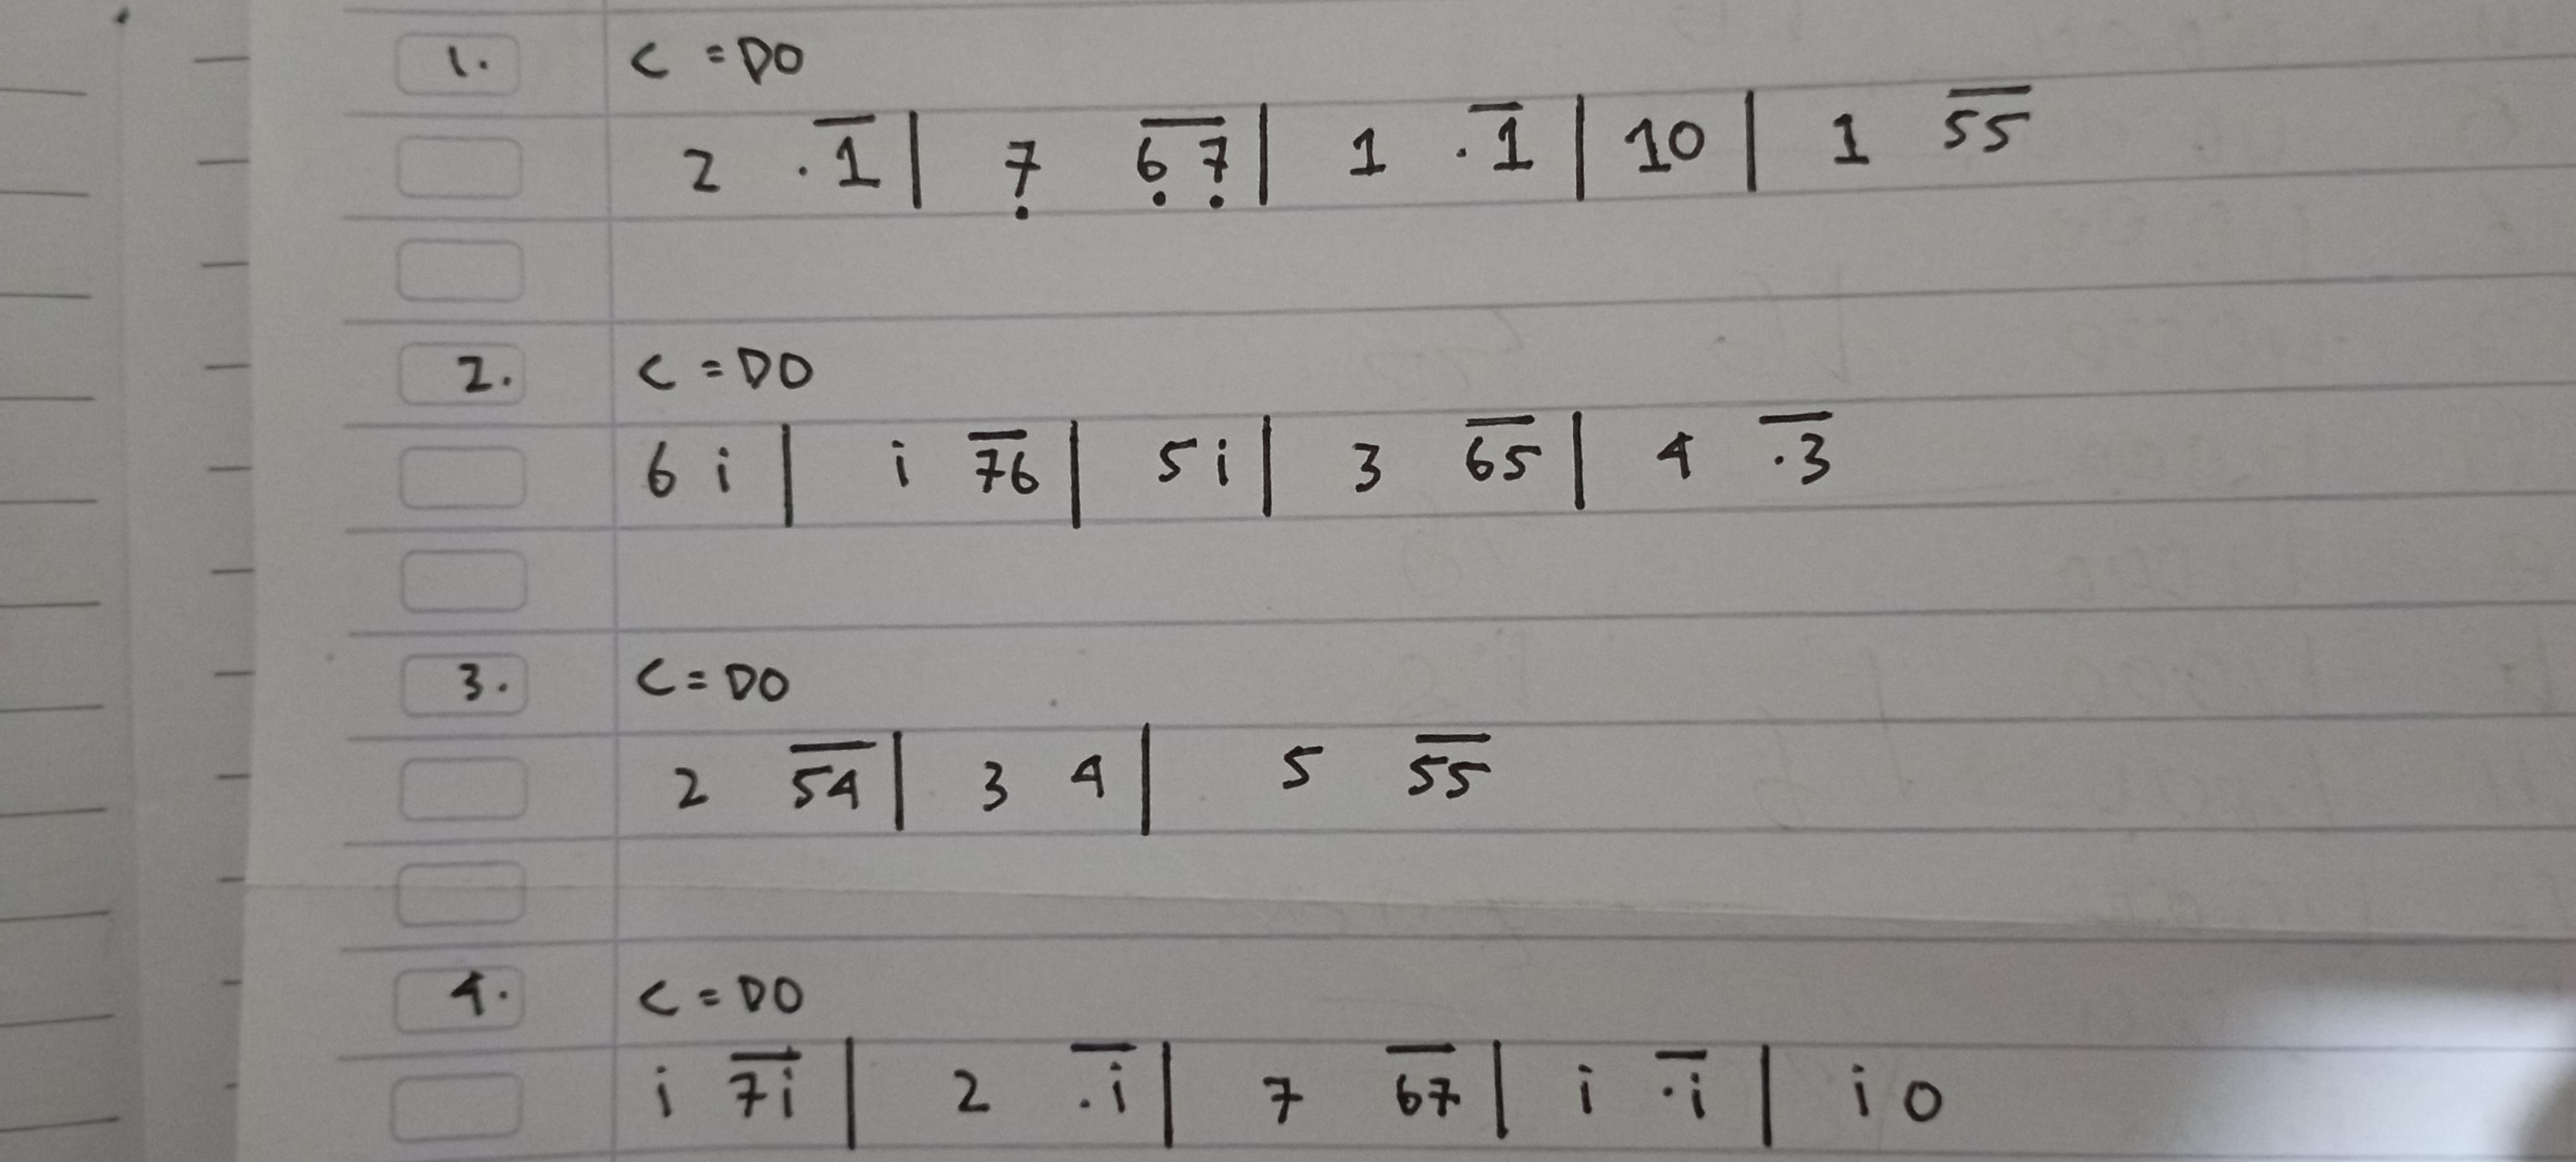 1. C = DO
2 .1̅ | 7̣ 6̣̅7̣̅ | 1 .1̅ | 10 | 1 5̅5̅
2. C = DO
6 i | i 7̅6̅ | 5 i | 3 6̅5̅ | 4 .̅3̅
3. C = DO
2 5̅4̅ | 3 4 | 5 5̅5̅
4. C = DO
i 7̅i̅ | 2 .̅i̅ | 7 6̅7̅ | i .̅i̅ | i 0